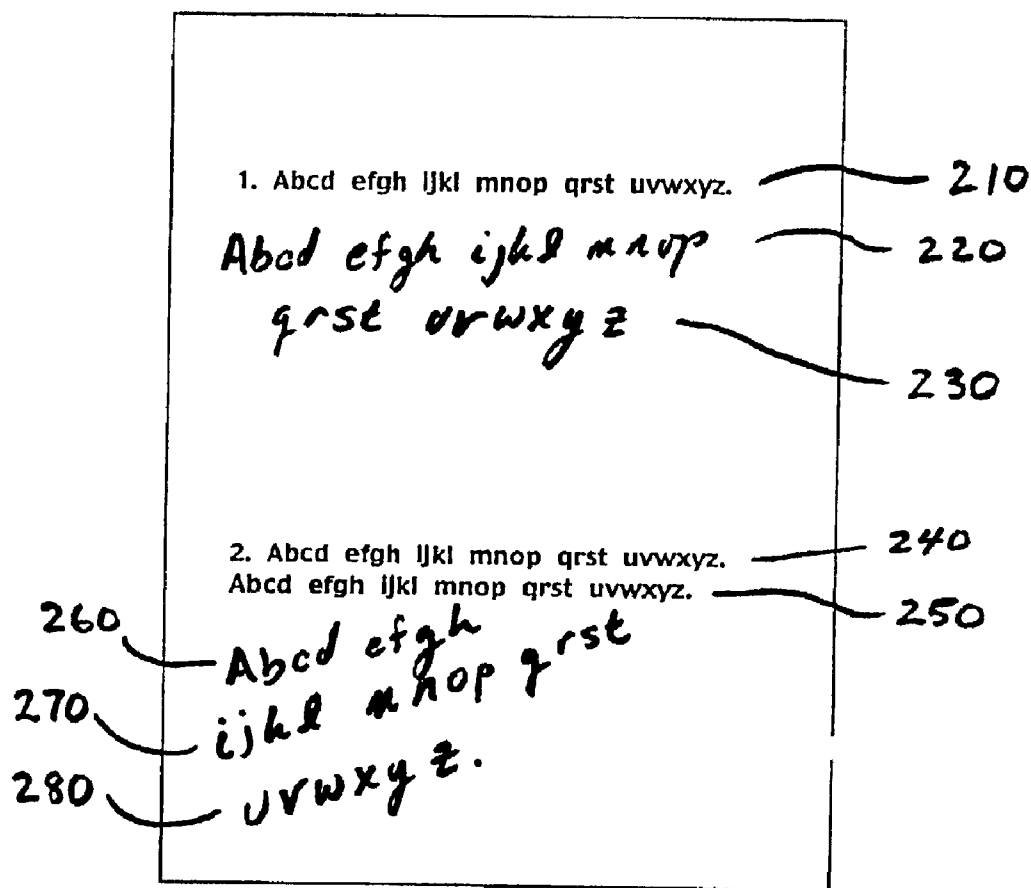 1. Abcd efgh ijkl mnop qrst uvwxyz. 210
Abcd efgh ijkl mnop 220
qrst uvwxyz 230
2. Abcd efgh ijkl mnop qrst uvwxyz. 240
Abcd efgh ijkl mnop qrst uvwxyz. 250
260 Abcd efgh
270 ijkl mnop qrst
280 uvwxyz.